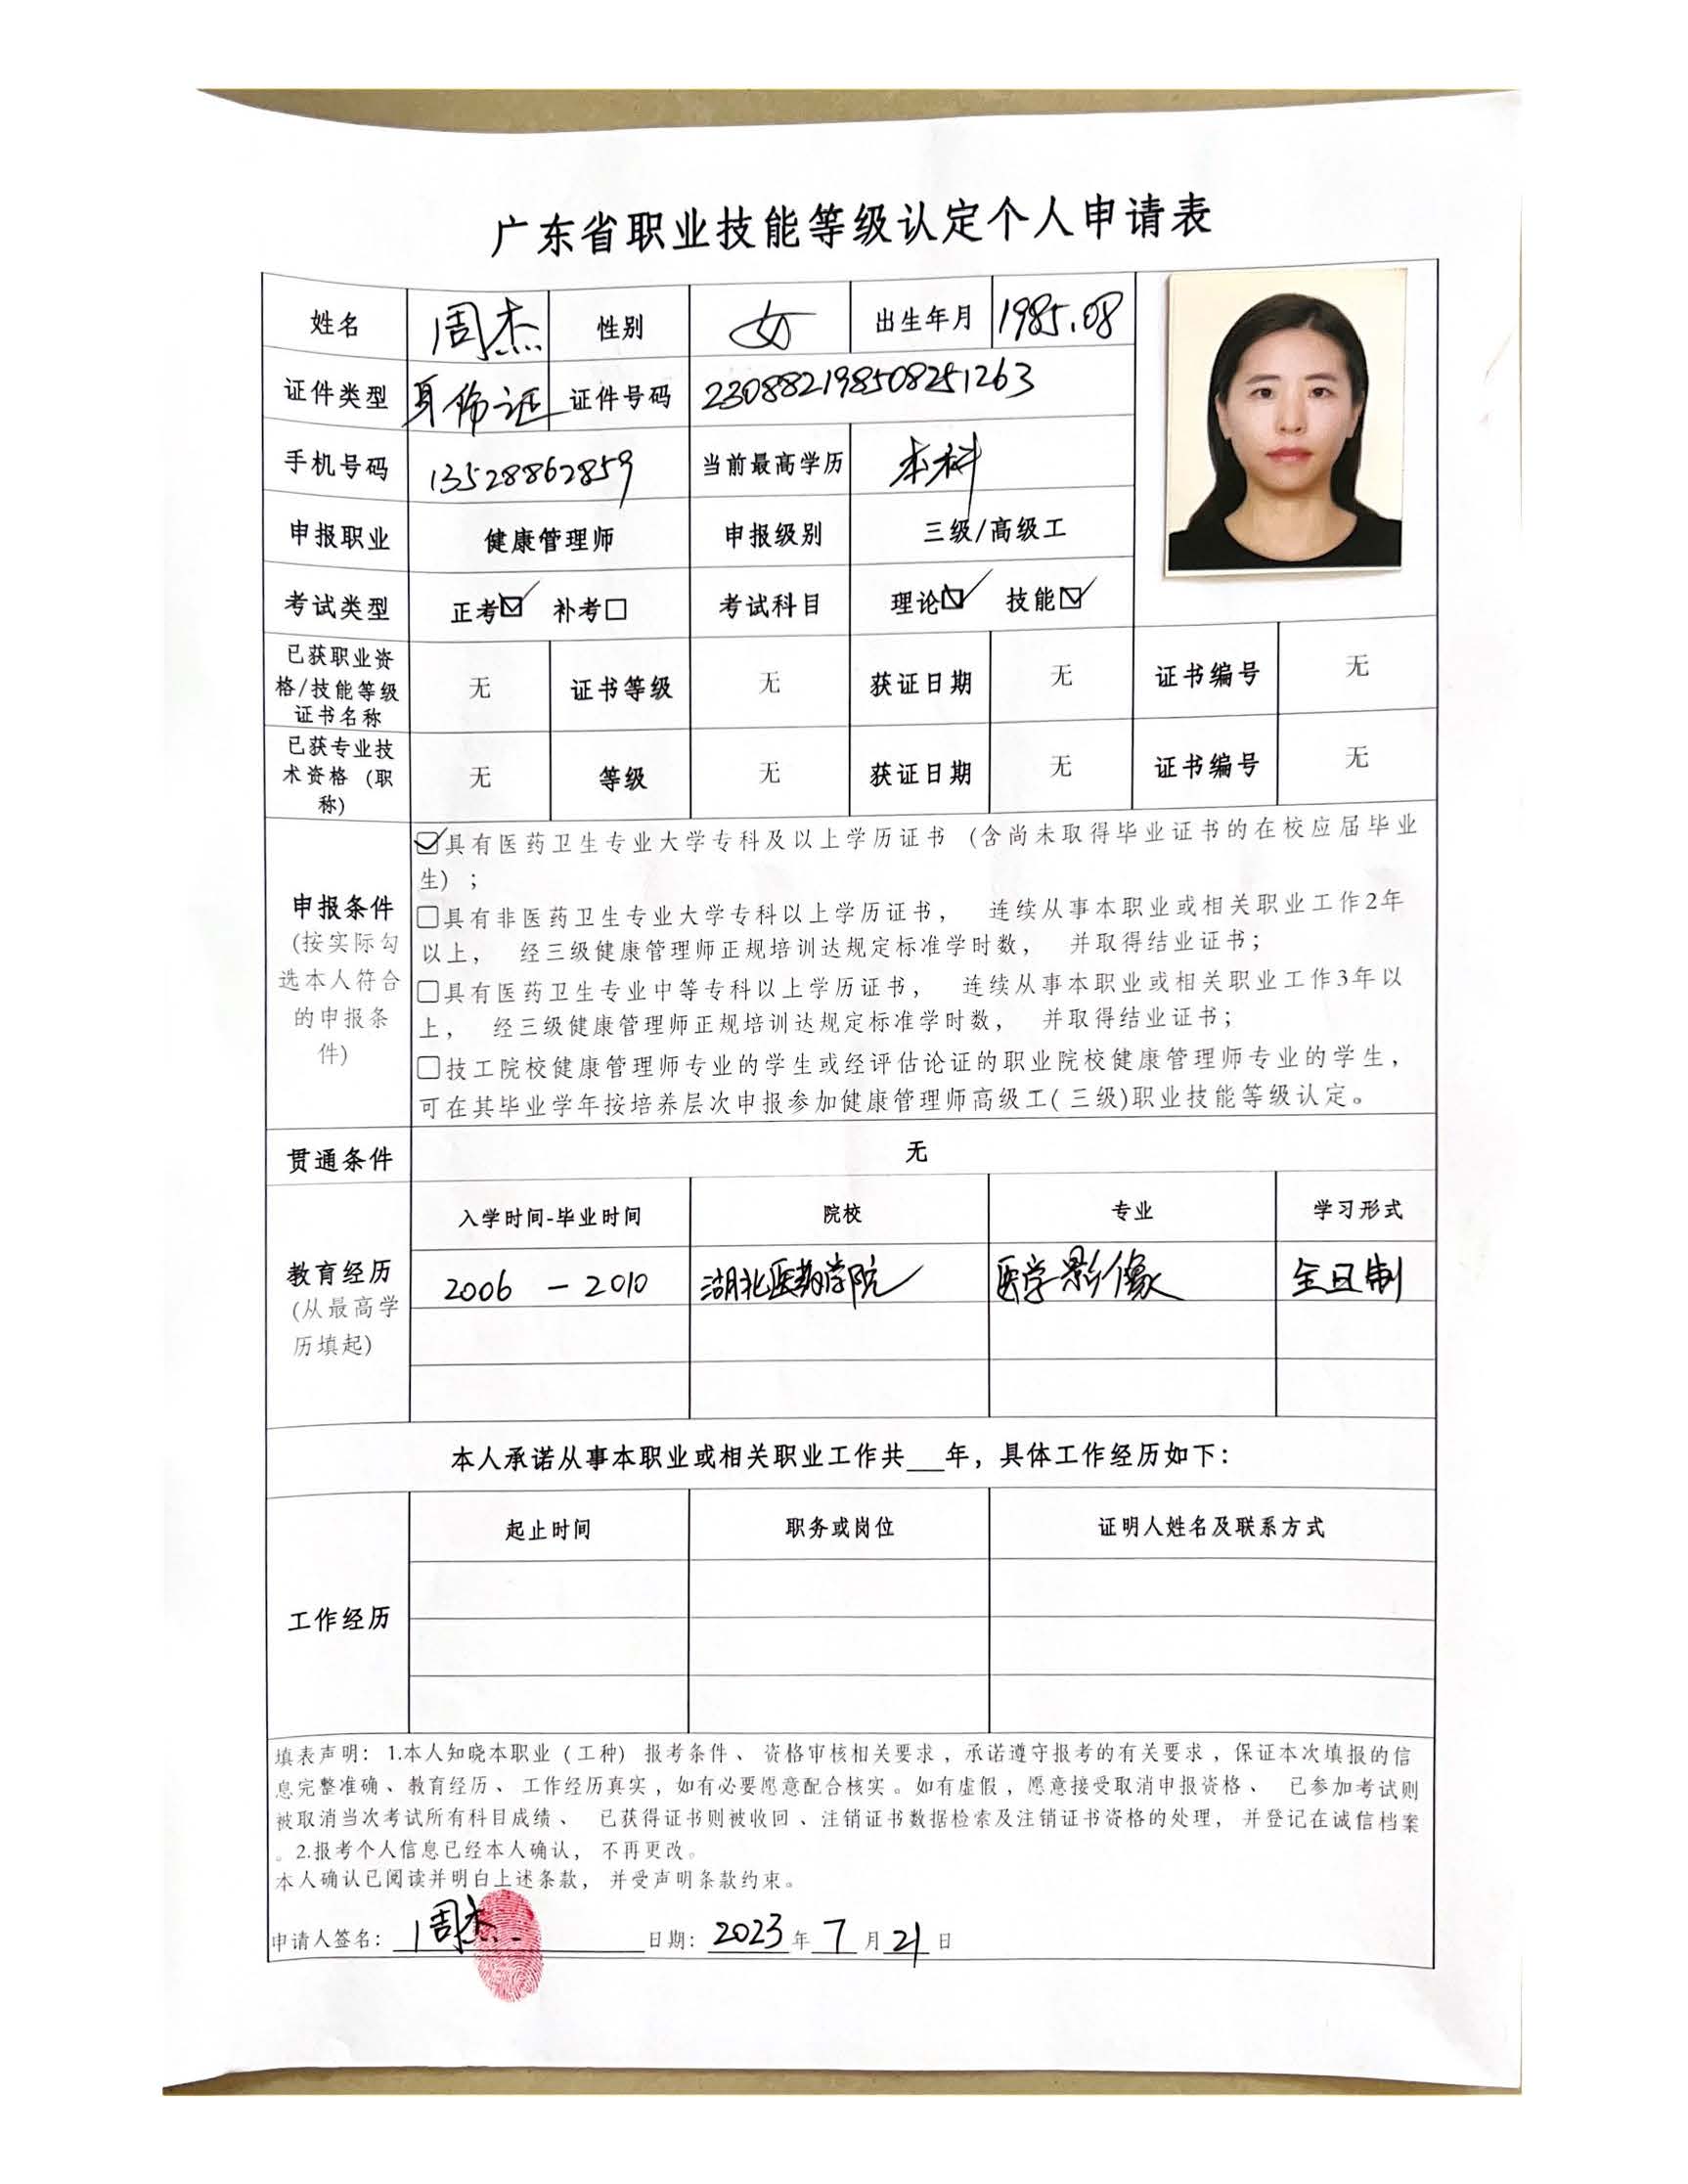 广东省职业技能等级认定个人申请表
姓名 周杰 性别 女 出生年月 1985.08
证件类型 身份证 证件号码 230882198508251263
手机号码 13528862859 当前最高学历 本科
申报职业 健康管理师 申报级别 三级/高级工
考试类型 正考☑ 补考□ 考试科目 理论☑ 技能☑
已获职业资
格/技能等级
证书名称
无 证书等级 无 获证日期 无 证书编号 无
已获专业技
术资格 (职
称)
无 等级 无 获证日期 无 证书编号 无
申报条件
(按实际勾
选本人符合
的申报条
件)
☑具有医药卫生专业大学专科及以上学历证书 (含尚未取得毕业证书的在校应届毕业
生) ;
□具有非医药卫生专业大学专科以上学历证书， 连续从事本职业或相关职业工作2年
以上， 经三级健康管理师正规培训达规定标准学时数， 并取得结业证书；
□具有医药卫生专业中等专科以上学历证书， 连续从事本职业或相关职业工作3年以
上， 经三级健康管理师正规培训达规定标准学时数， 并取得结业证书；
□技工院校健康管理师专业的学生或经评估论证的职业院校健康管理师专业的学生，
可在其毕业学年按培养层次申报参加健康管理师高级工(三级)职业技能等级认定。
贯通条件 无
教育经历
(从最高学
历填起)
入学时间-毕业时间 院校 专业 学习形式
2006 - 2010 湖北医药学院 医学影像 全日制
本人承诺从事本职业或相关职业工作共___年，具体工作经历如下：
工作经历
起止时间 职务或岗位 证明人姓名及联系方式
填表声明： 1.本人知晓本职业 (工种) 报考条件、 资格审核相关要求，承诺遵守报考的有关要求，保证本次填报的信
息完整准确、教育经历、 工作经历真实，如有必要愿意配合核实。如有虚假，愿意接受取消申报资格、 已参加考试则
被取消当次考试所有科目成绩、 已获得证书则被收回、注销证书数据检索及注销证书资格的处理， 并登记在诚信档案
。2.报考个人信息已经本人确认， 不再更改。
本人确认已阅读并明白上述条款， 并受声明条款约束。
申请人签名： 周杰 日期： 2023 年 7 月 21 日